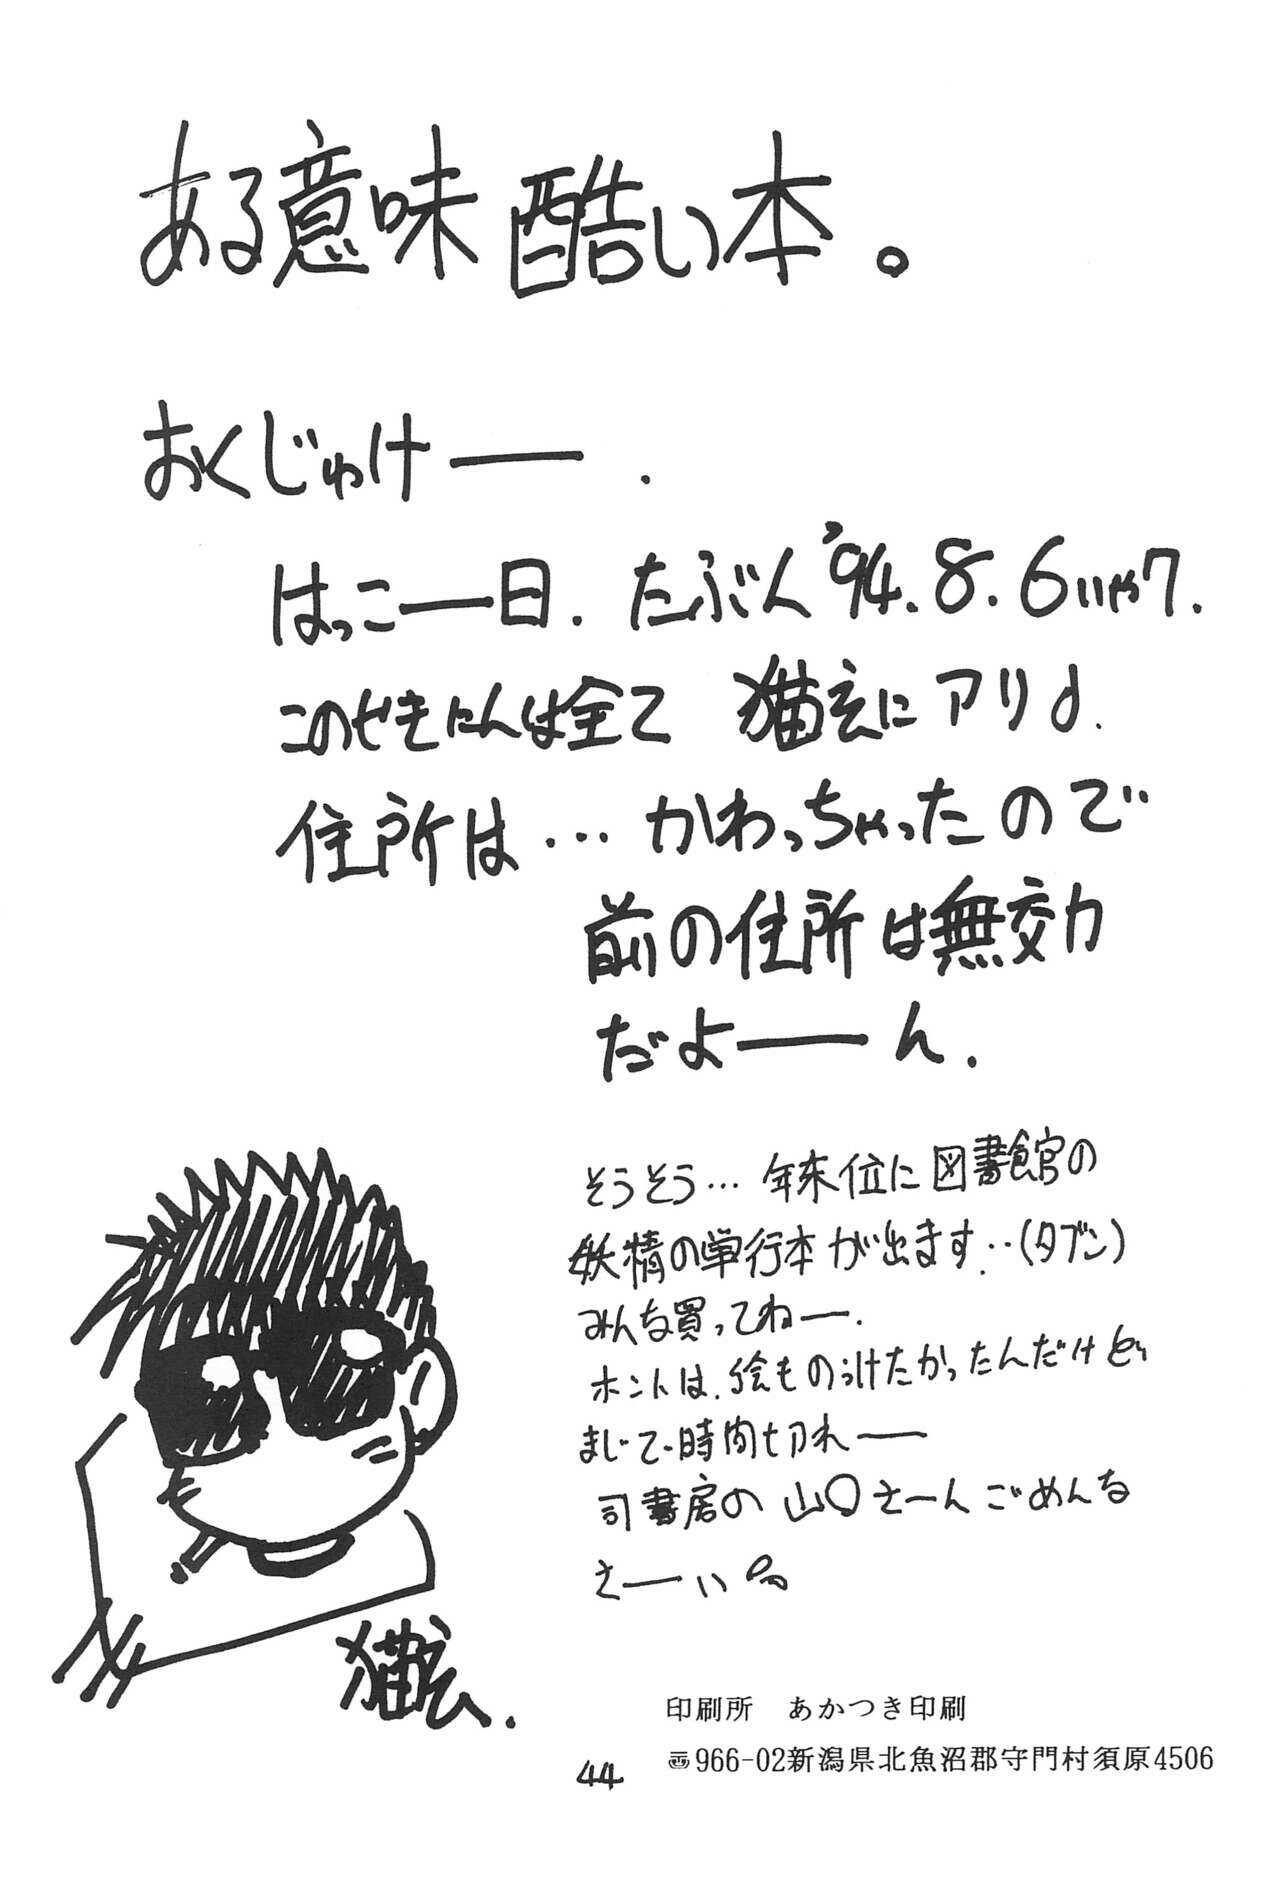 ある意味酷い本。
おくじゅけー.
はっこー日.たぶん'94.8.6いや7.
このせきにんは全て 猫玄にアリ♪.
住所は…かわっちゃったので
前の住所は無交力
だよーん.
そうそう…年末位に図書館の
妖精の単行本が出ます‥(タブン)
みんな買ってねー.
ホントは、絵もの汁たかったんだけど
まじで時間切れー
司書房の山〇さーんごめんな
さーい
猫玄.
印刷所 あかつき印刷
966-02新潟県北魚沼郡守門村須原4506
44